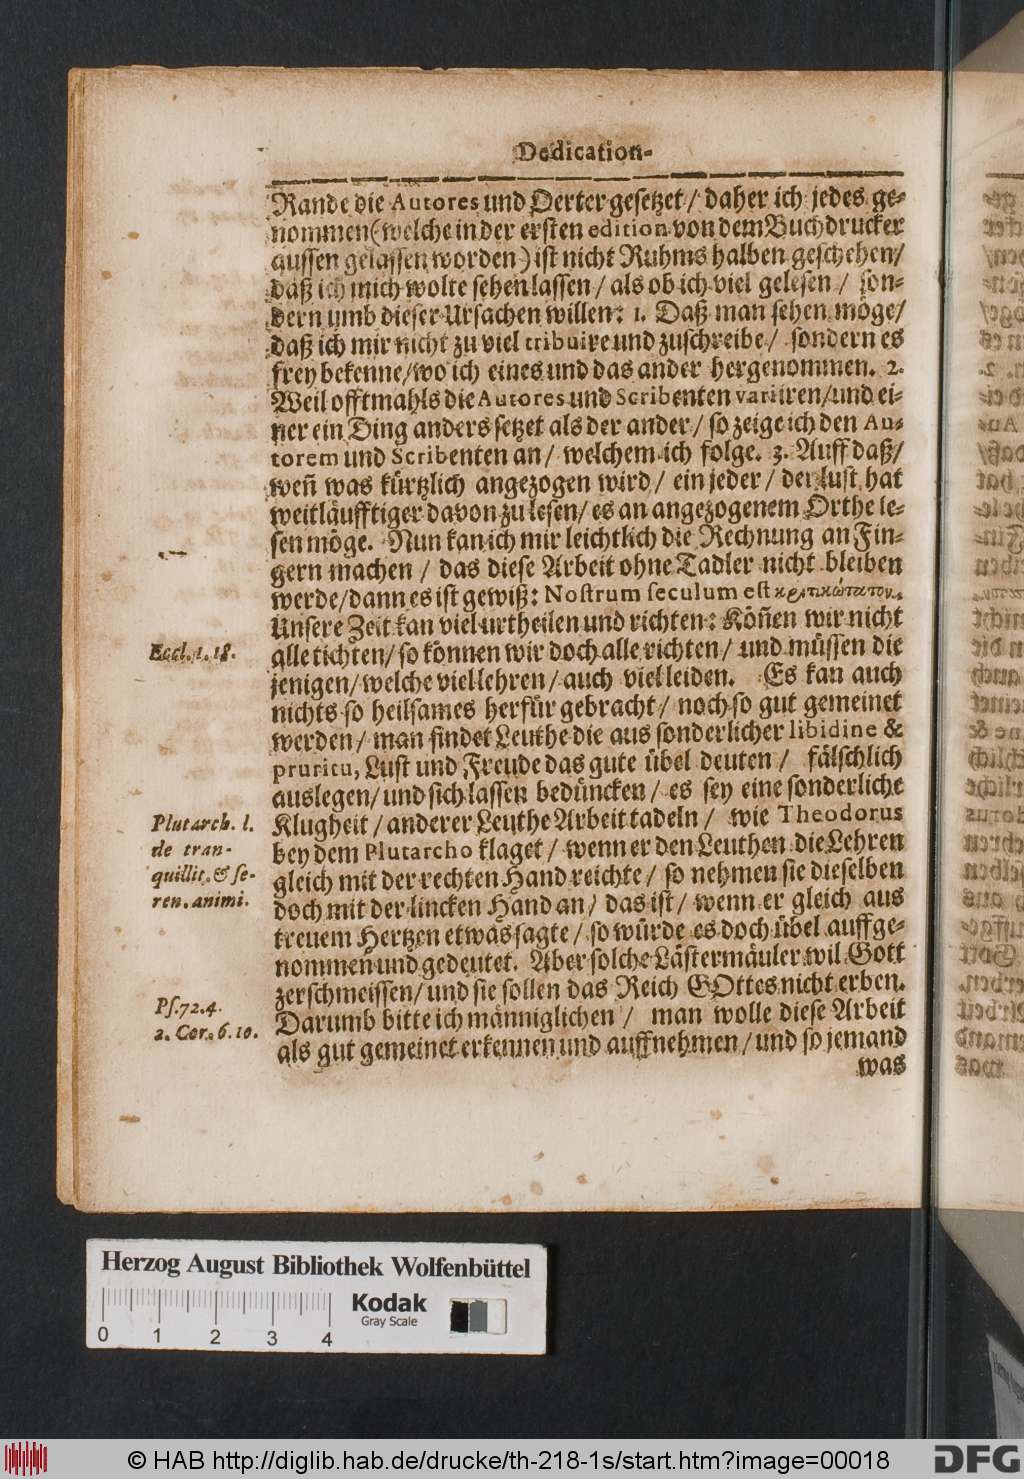 Dedication-
Rande die Autores und Oerter gesetzet / daher ich jedes ge-
nommen (welche in der ersten edition von dem Buchdrucker
aussen gelassen worden) ist nicht Ruhms halben geschehen /
daß ich mich wolte sehen lassen / als ob ich viel gelesen / son-
dern umb dieser Ursachen willen: 1. Daß man sehen möge /
daß ich mir nicht zu viel tribuire und zuschreibe / sondern es
frey bekenne / wo ich eines und das ander hergenommen. 2.
Weil offtmahls die Autores und Scribenten variiren / und ei-
ner ein Ding anders setzet als der ander / so zeige ich den Au-
torem und Scribenten an / welchem ich folge. 3. Auff daß /
weñ was kürtzlich angezogen wird / ein jeder / der lust hat
weitläufftiger davon zu lesen / es an angezogenem Orthe le-
sen möge. Nun kan ich mir leichtlich die Rechnung an Fin-
gern machen / das diese Arbeit ohne Tadler nicht bleiben
werde / dann es ist gewiß: Nostrum seculum est κριτικώτατον,
Unsere Zeit kan viel urtheilen und richten: Köñen wir nicht
Eccl. 1. 18.
alle tichten / so können wir doch alle richten / und müssen die
jenigen / welche viel lehren / auch viel leiden. Es kan auch
nichts so heilsames herfür gebracht / noch so gut gemeinet
werden / man findet Leuthe die aus sonderlicher libidine &
pruritu, Lust und Freude das gute übel deuten / fälschlich
auslegen / und sich lassen bedüncken / es sey eine sonderliche
Klugheit / anderer Leuthe Arbeit tadeln / wie Theodorus
bey dem Plutarcho klaget / wenn er den Leuthen die Lehren
gleich mit der rechten Hand reichte / so nehmen sie dieselben
doch mit der lincken Hand an / das ist / wenn er gleich aus
treuem Hertzen etwas sagte / so würde es doch übel auffge-
nommen und gedeutet. Aber solche Lästermäuler wil Gott
zerschmeissen / und sie sollen das Reich GOttes nicht erben.
Darumb bitte ich männiglichen / man wolle diese Arbeit
als gut gemeinet erkennen und auffnehmen / und so jemand
was
Plutarch. l.
de tran-
quillit. & se-
ren. animi.
Ps. 72. 4.
2. Cor. 6. 10.
Herzog August Bibliothek Wolfenbüttel
Kodak
Gray Scale
0 1 2 3 4
© HAB http://diglib.hab.de/drucke/th-218-1s/start.htm?image=00018
DFG